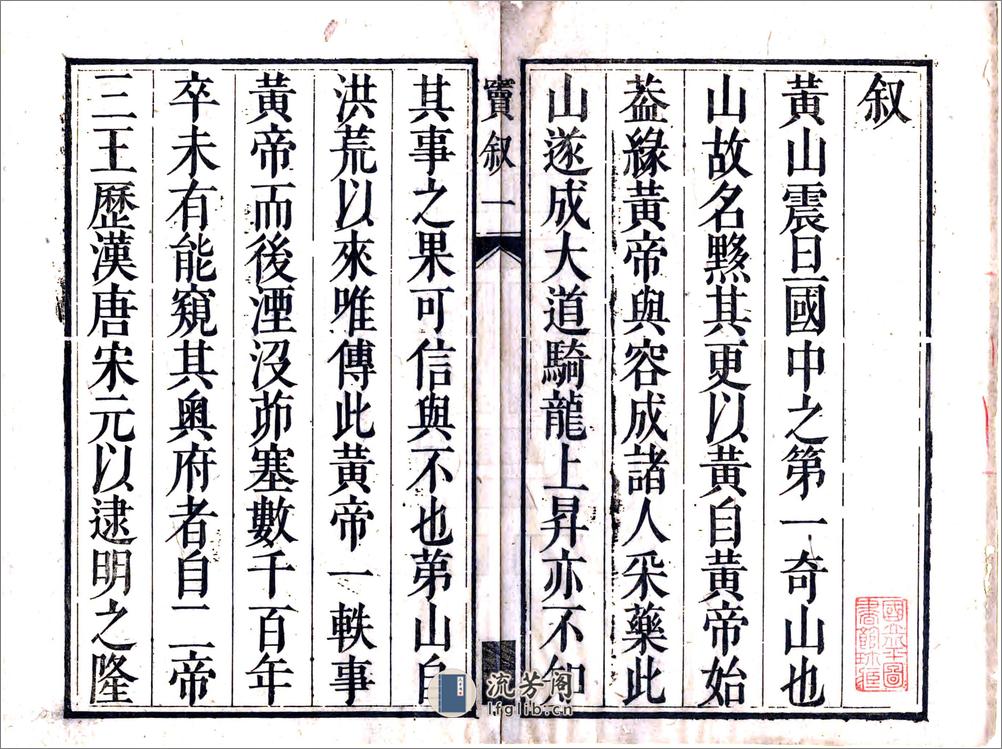 叙
黃山震旦國中之第一奇山也
山故名黟其更以黃自黃帝始
葢緣黃帝與容成諸人采藥此
山遂成大道騎龍上昇亦不知
竇叙 一
其事之果可信與不也苐山自
洪荒以來唯傳此黃帝一軼事
黃帝而後湮沒茆塞數千百年
卒未有能窺其奧府者自二帝
三王歷漢唐宋元以逮明之隆
流芳阁
lfglib.cn